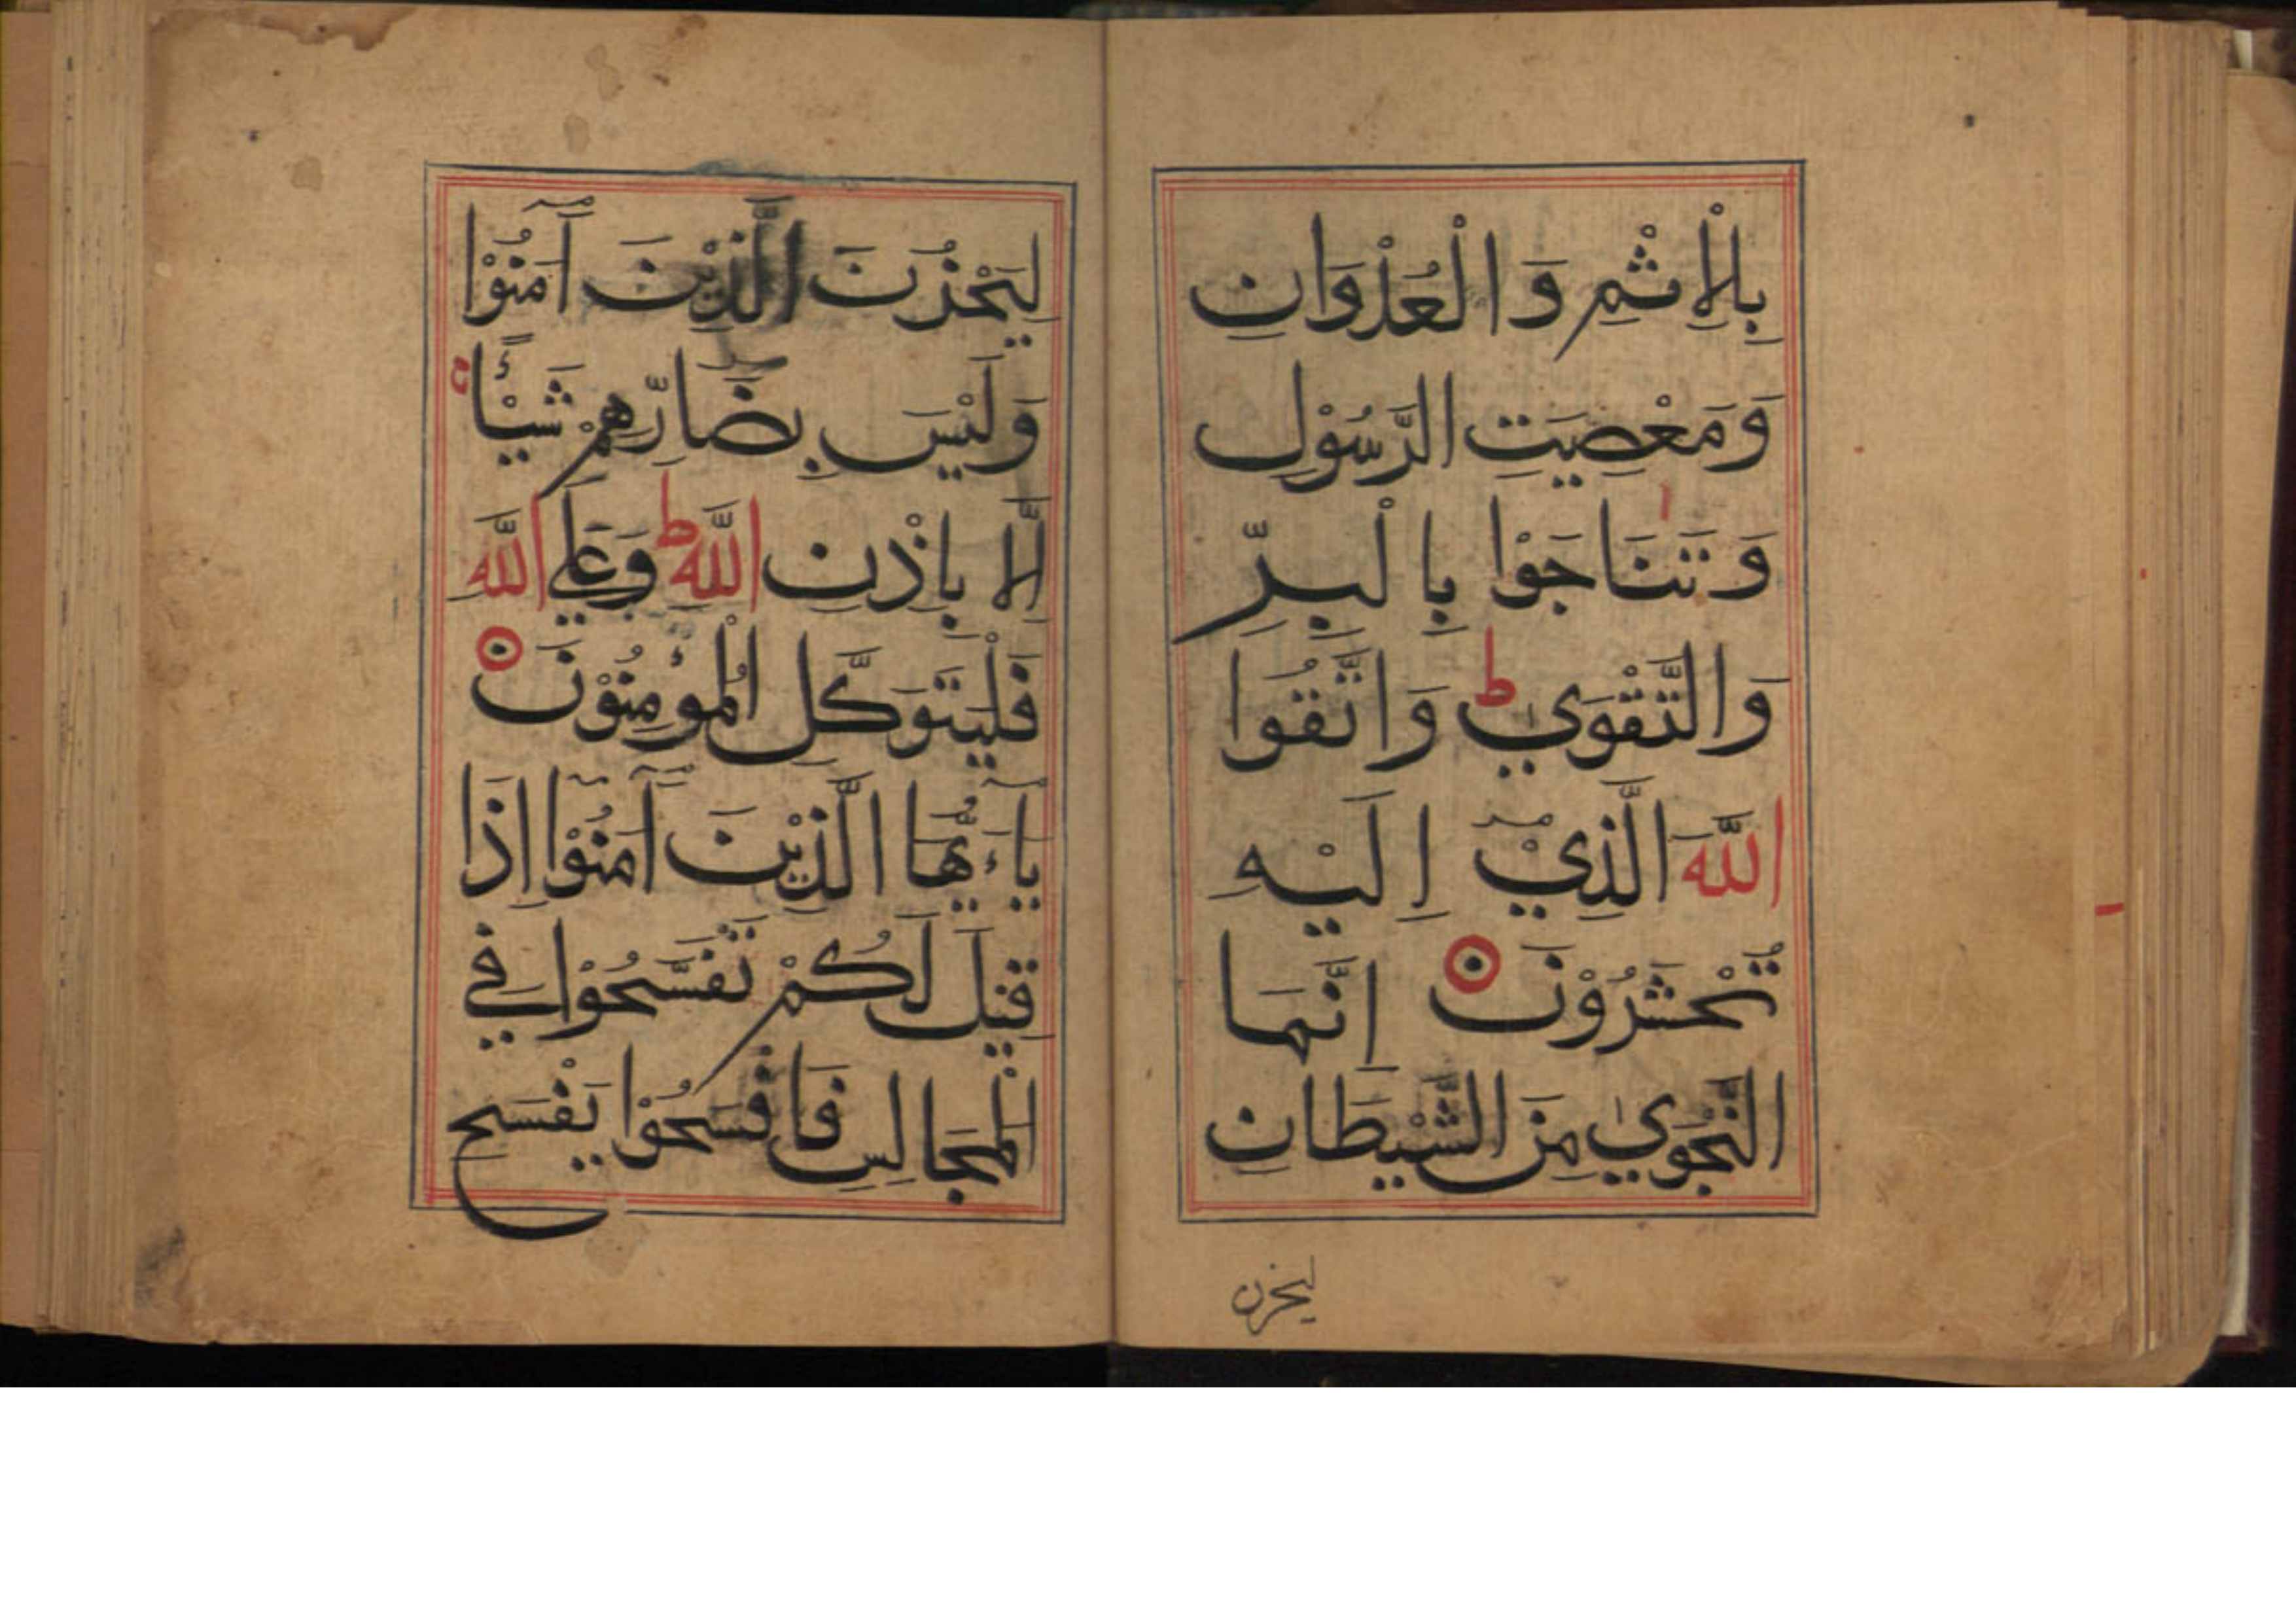 بِالْاِثْمِ وَالْعُدْوَانِ
وَمَعْصِيَتِ الرَّسُوْلِ
وَتَنَاجَوْا بِالْبِرِّ
وَالتَّقْوٰي ط وَاتَّقُوا
اللّٰهَ الَّذِيْٓ اِلَيْهِ
تُحْشَرُوْنَ اِنَّمَا
النَّجْوٰي مِنَ الشَّيْطَانِ
ليحزن
لِيَحْزُنَ الَّذِيْنَ آمَنُوْا
وَلَيْسَ بِضَارِّهِمْ شَيْـًٔا
اِلَّا بِاِذْنِ اللّٰهِ ط وَعَلَي اللّٰهِ
فَلْيَتَوَكَّلِ الْمُؤْمِنُوْنَ
يَاءَيُّهَا الَّذِيْنَ آمَنُوْا اِذَا
قِيْلَ لَكُمْ تَفَسَّحُوْا فِي
الْمَجَالِسِ فَافْسَحُوْا يَفْسَحِ